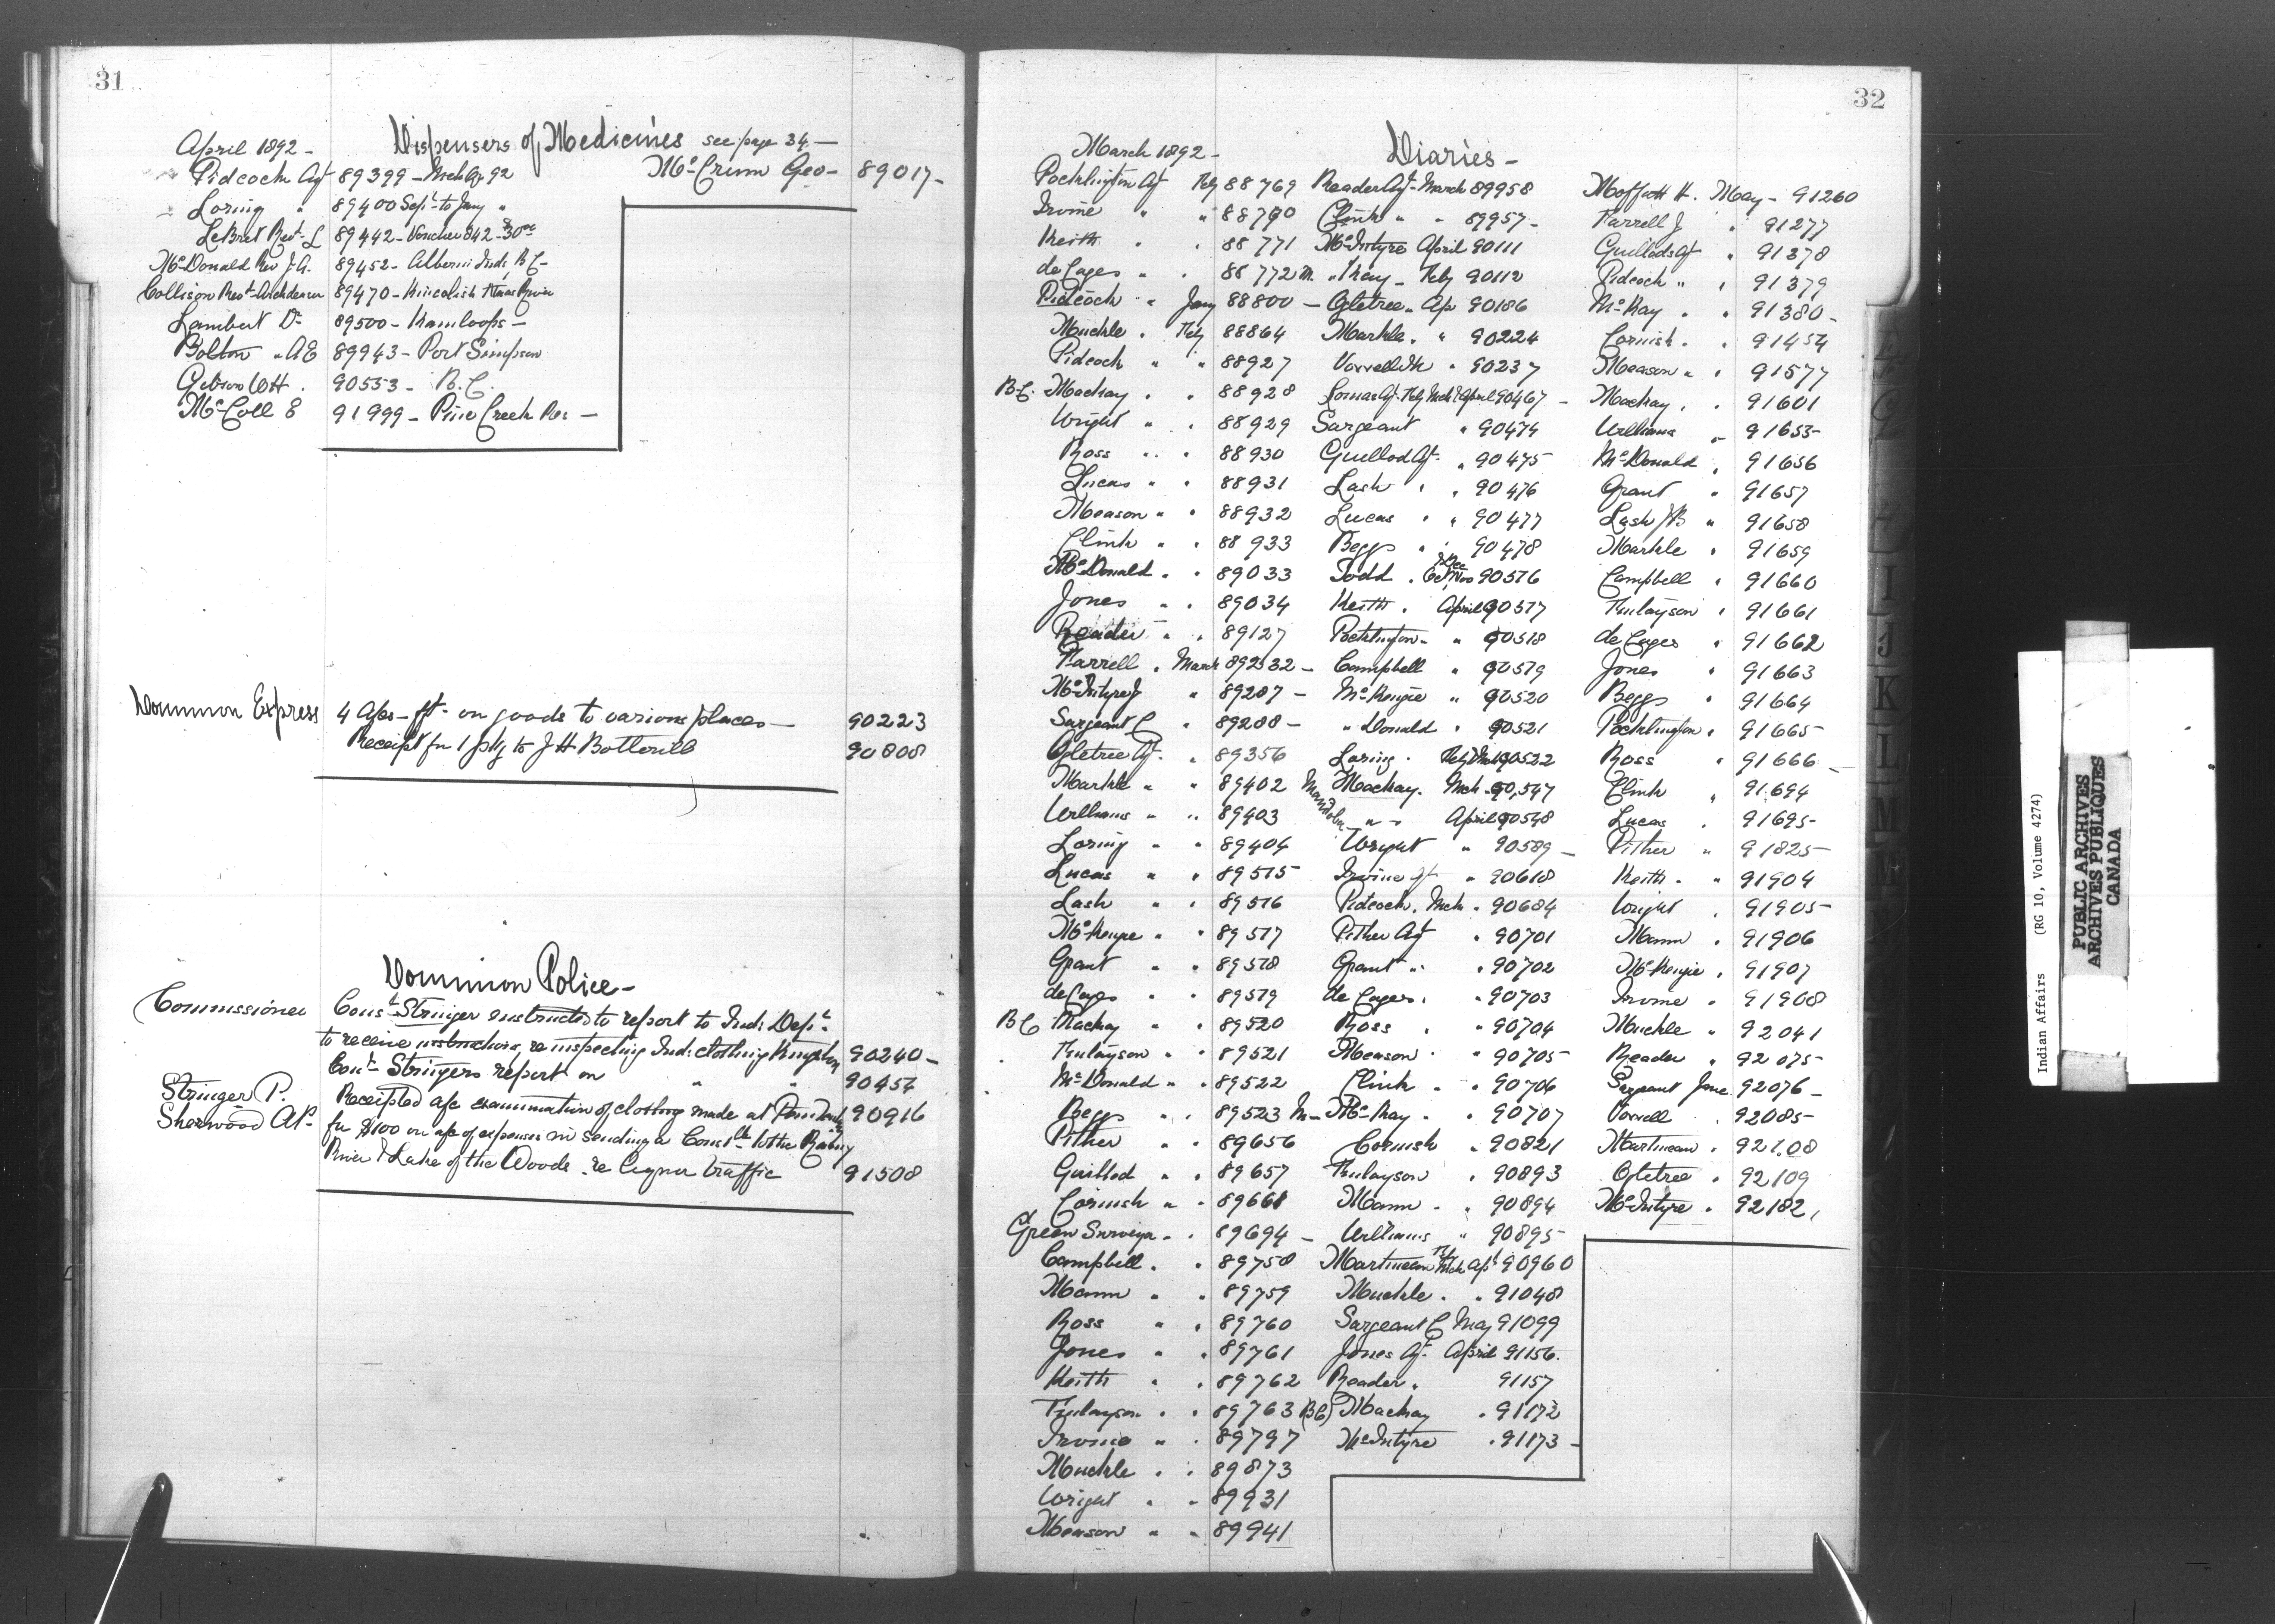 31
Dispensers of Medicines see page 34 —
April 1892 -
Pidcock Agt 89399 - Mch Qr 92
McCrum Geo - 89017 -
Loring " 89400 Sept to Jany "
LeBret Revd L 89442 - Voucher 842 - $30.00
McDonald Rev J. A. 89452 - Alberni Inds B C -
Collison Revd Archdeacon 89470 - Kincolith Naas River
Lambert Dr 89500 - Kamloops -
Bolton " A E 89943 - Port Simpson
90553 - B. C.
McColl E 91999 - Pine Creek Res -
Dominion Express
4 A/cs - frt on goods to various places — 90223
Receipt for 1 pkg to J H Botterill 90808
Dominion Police -
Commissioner Const Stringer instructed to report to Ind: Dept
to receive instructions re inspecting Ind: clothing Kingston 90240 -
Const Stringers report on " " 90457
Stringer P. Receipted a/c examination of clothing made at 90916
Sherwood A P - for $100 on a/c of expenses in sending a Constble to the Rainy
River & Lake of the Woods re liquor traffic 91508
32
Diaries -
March 1892 -
Pocklington Agt Feby 88769
Irvine " " 88770
Keith " " 88771
de Cazes " " 88772
Pidcock " Jany 88800 -
Muckle " Feby 88864
Pidcock " " 88927
B.C. Mackay " " 88928
Wright " " 88929
Ross " " 88930
Lucas " " 88931
Measson " " 88932
Clink " " 88933
McDonald " " 89033
Jones " " 89034
Reader " " 89127
Farrell " March 89232 -
McIntyre J " 89207 -
Sargeant C " 89208 -
Ogletree Agt " 89356
Markle " " 89402
Williams " " 89403
Loring " " 89404
Lucas " " 89515
Lash " " 89516
McKenzie " " 89517
Grant " " 89518
de Cazes " " 89519
B C Mackay " " 89520
Finlayson " " 89521
McDonald " " 89522
Beggs " " 89523
Pither " " 89656
Guillod " " 89657
Cornish " " 89661
Green Surveyor " " 89694 -
Campbell " " 89758
Mann " " 89759
Ross " " 89760
Jones " " 89761
Keith " " 89762
Finlayson " " 89763
Irvine " " 89797
Muckle " " 89873
Wright " " 89931
Measson " " 89941
Reader Agt March 89958
Clink " " 89957 -
McIntyre April 90111
M. " Kay - Feby 90112
Ogletree " Ap 90186
Markle " " 90224
Vowell " 90237
Lomas Agt Feby Mch & April 90467 -
Sargeant " 90474
Guillod Agt " 90475
Lash " " 90476
Lucas " " 90477
Beggs " " 90478
Todd " Oct Nov & Dec 90516
Keith " April 90517
Pocklington " " 90518
Campbell " 90519
McKenzie " 90520
" Donald " 90521
Loring " Feby & Mch 90522
Mackay " Mch 90,547
Mandolin " " April 90548
Wright " 90589 -
Irvine Agt " 90618
Pidcock " Mch " 90684
Pither Agt " 90701
Grant " " 90702
de Cazes " " 90703
Ross " " 90704
Measson " " 90705
Clink " " 90706
M - McKay " " 90707
Cornish " 90821
Finlayson " 90893
Mann " " 90894
Williams " 90895
Martineau Feby Mch Apl 90960
Muckle " " 91048
Sargeant C May 91099
Jones Agt April 91156.
Reader " 91157
(B C) Mackay " 91172
McIntyre " 91173 -
Moffatt H. May - 91260
Farrell J " 91277
Guillod Agt " 91378
Pidcock " " 91379
McKay " " 91380 -
Cornish " " 91454
Measson " " 91577
Mackay " " 91601
Williams " 91653 -
McDonald " 91656
Grant " 91657
Lash J B " 91658
Markle " 91659
Campbell " 91660
Finlayson " 91661
de Cazes " 91662
Jones " 91663
Beggs " 91664
Pocklington " 91665 -
Ross " 91666 -
Clink " 91694
Lucas " 91695 -
Pither " 91825 -
Keith " " 91904
Wright " 91905 -
Mann " 91906
McKenzie " 91907
Irvine " 91908
Muckle " 92041
Reader " 92075 -
Sargeant June 92076 -
Vowell " 92085 -
Martineau " 92108
Ogletree " 92109
McIntyre " 92182
Indian Affairs (RG 10, Volume 4274)
PUBLIC ARCHIVES
ARCHIVES PUBLIQUES
CANADA